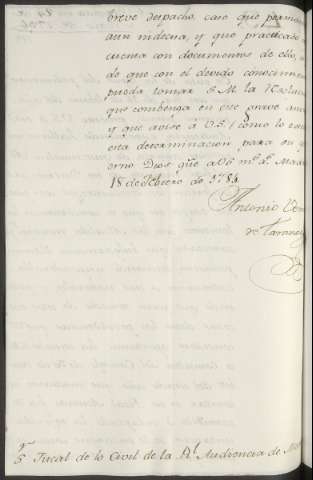 breve despacho, caso que perman
aun indecisa, y que practicado
cuenta con documentos de ello, a
de que con el devido conocimien
pueda tomar S.M. la Resoluc
que combenga en este grave asun
y que avise à V.S. (como lo exec
esta determinacion para su g
erno Dios gue à VS ms. as. Madr
18 de Febrero de 1784
Antonio Ven
de Taranc
Sr. Fiscal de lo Civil de la Rl. Audiencia de